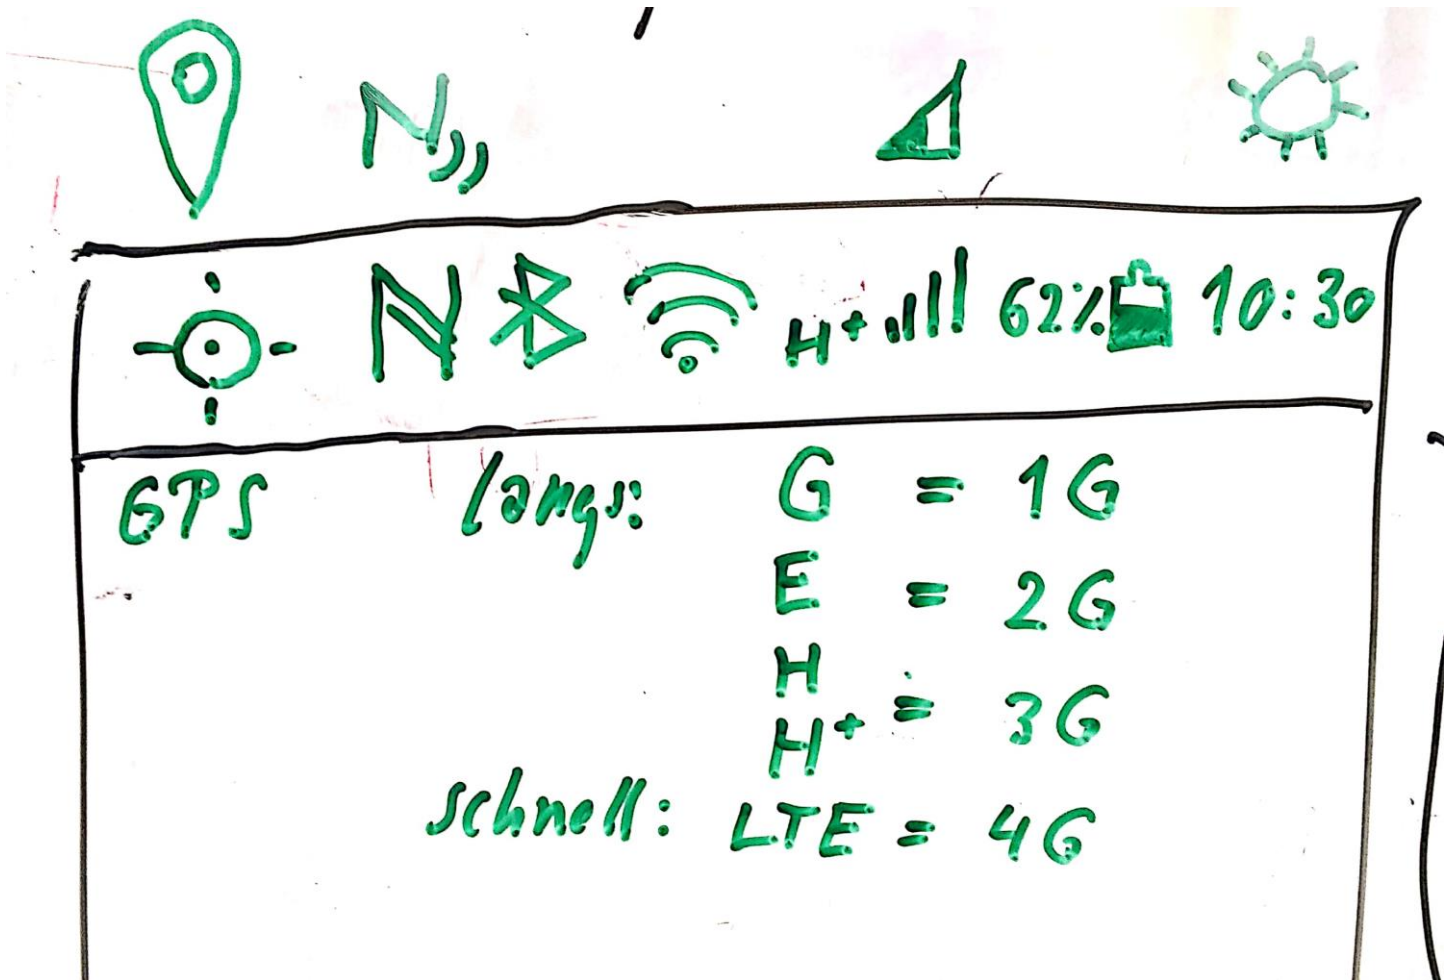 N
N H+ 62% 10:30
GPS langs: G = 1G
E = 2G
H
H+ = 3G
schnell: LTE = 4G